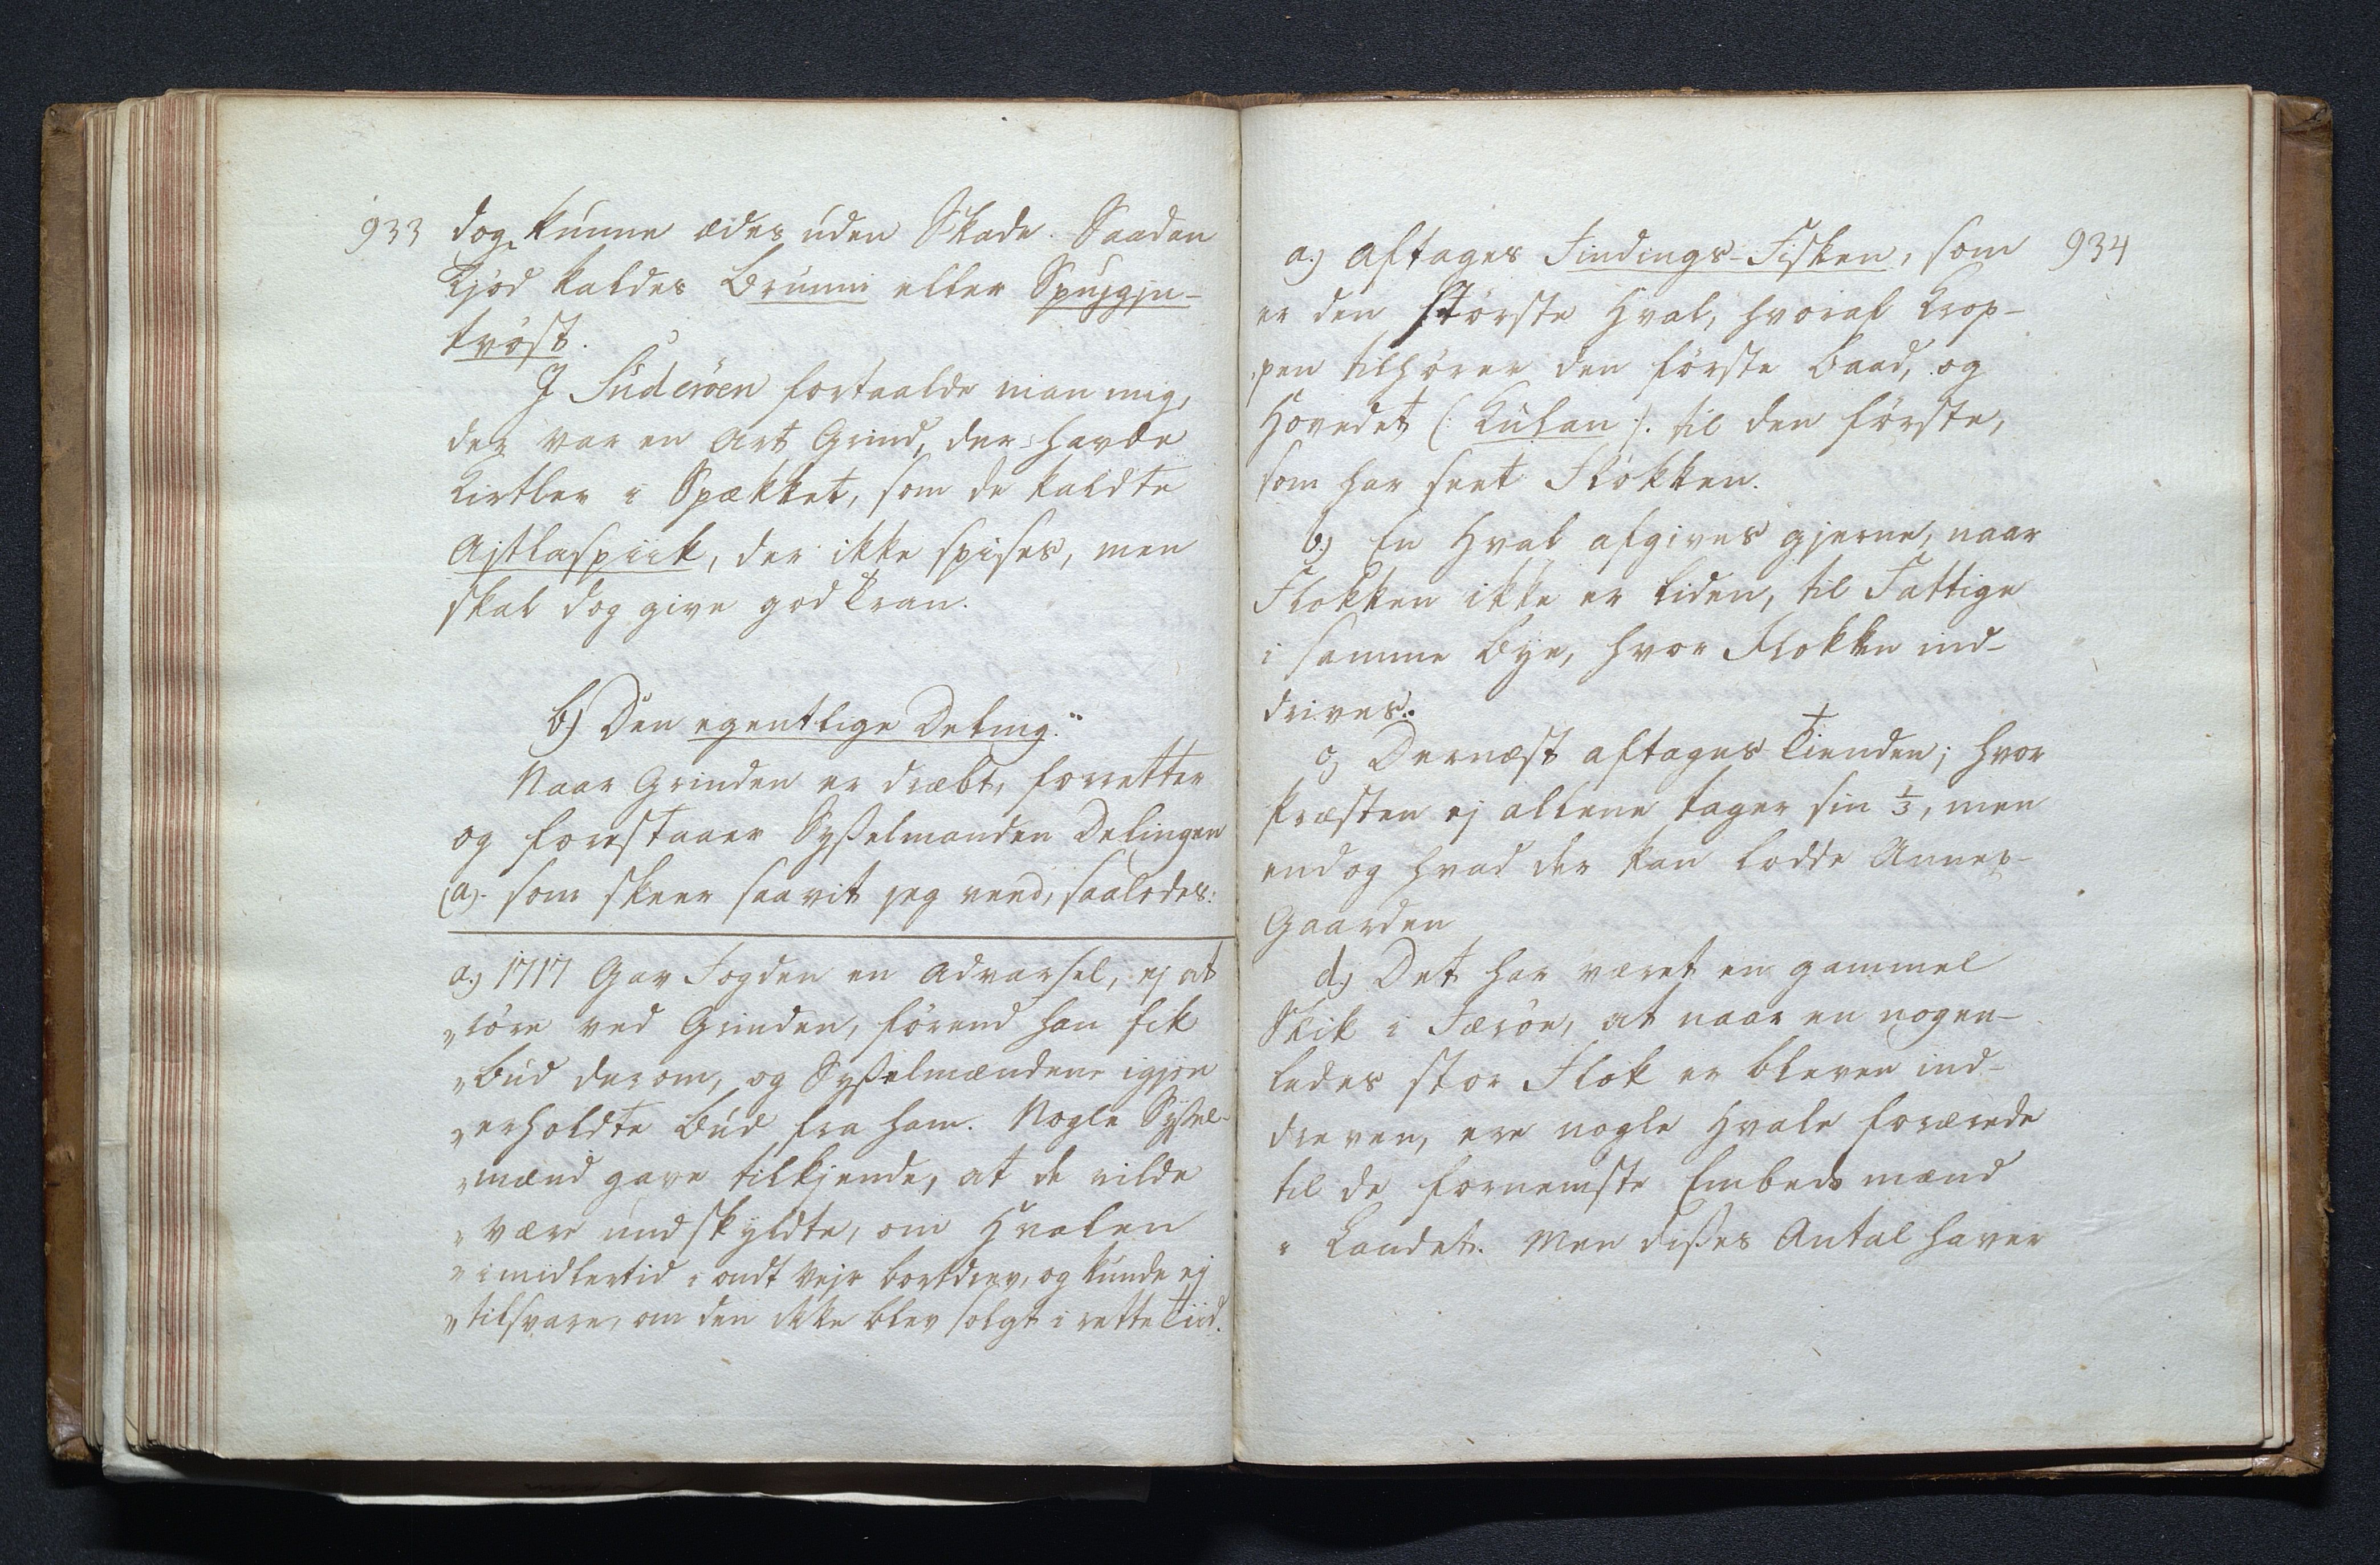 933
dog kunne ædes uden Skade. Saadan
Kjød kaldes Brunni eller Spujgju-
trøst.
I Suderøen fortaalde man mig,
der var en Art Grind, der havde
Kirtler i Spækket, som de kaldte
Ajtlaspiik, der ikke spises, men
skal dog give god Tran.
b) Den egentlige Deling.
Naar Grinden er dræbt, forretter
og forestaaer Sysselmanden Delingen
(a). som skeer saavit jeg veed, saaledes:
a.) 1717 Gav Fogden en Advarsel, ej at
"røre ved Grinden, førend han fik
"Bud derom, og Sysselmændene igjen
"erholdte Bud fra ham. Nogle Syssel-
"mænd gave tilkjende, at de vilde
"være undskyldte, om Hvalen
"imidlertid i ondt Vejr bortdrev, og kunde ej
"tilsvare, om den ikke blev solgt i rette Tiid.
934
a.) Aftages Findings-Fisken, som
er den største Hval, hvoraf Krop-
pen tilhører den første Baad, og
Hovedet (: Kulan :). til den første,
som har seet Flokken.
b.) En Hval afgives gjerne, naar
Flokken ikke er liden, til Fattige
i samme Bye, hvor Flokken ind-
drives.
c) Dernæst aftages Tienden; hvor
Præsten ej allene tager sin 1/3, men
endog hvad der kan lodde Annex-
Gaarden
d.) Det har været en gammel
Skik i Færøe, at naar en nogen-
ledes stor Flok er bleven ind-
dreven, ere nogle Hvale forærede
til de fornemste Embedsmænd
i Landet. Men disses Antal haver